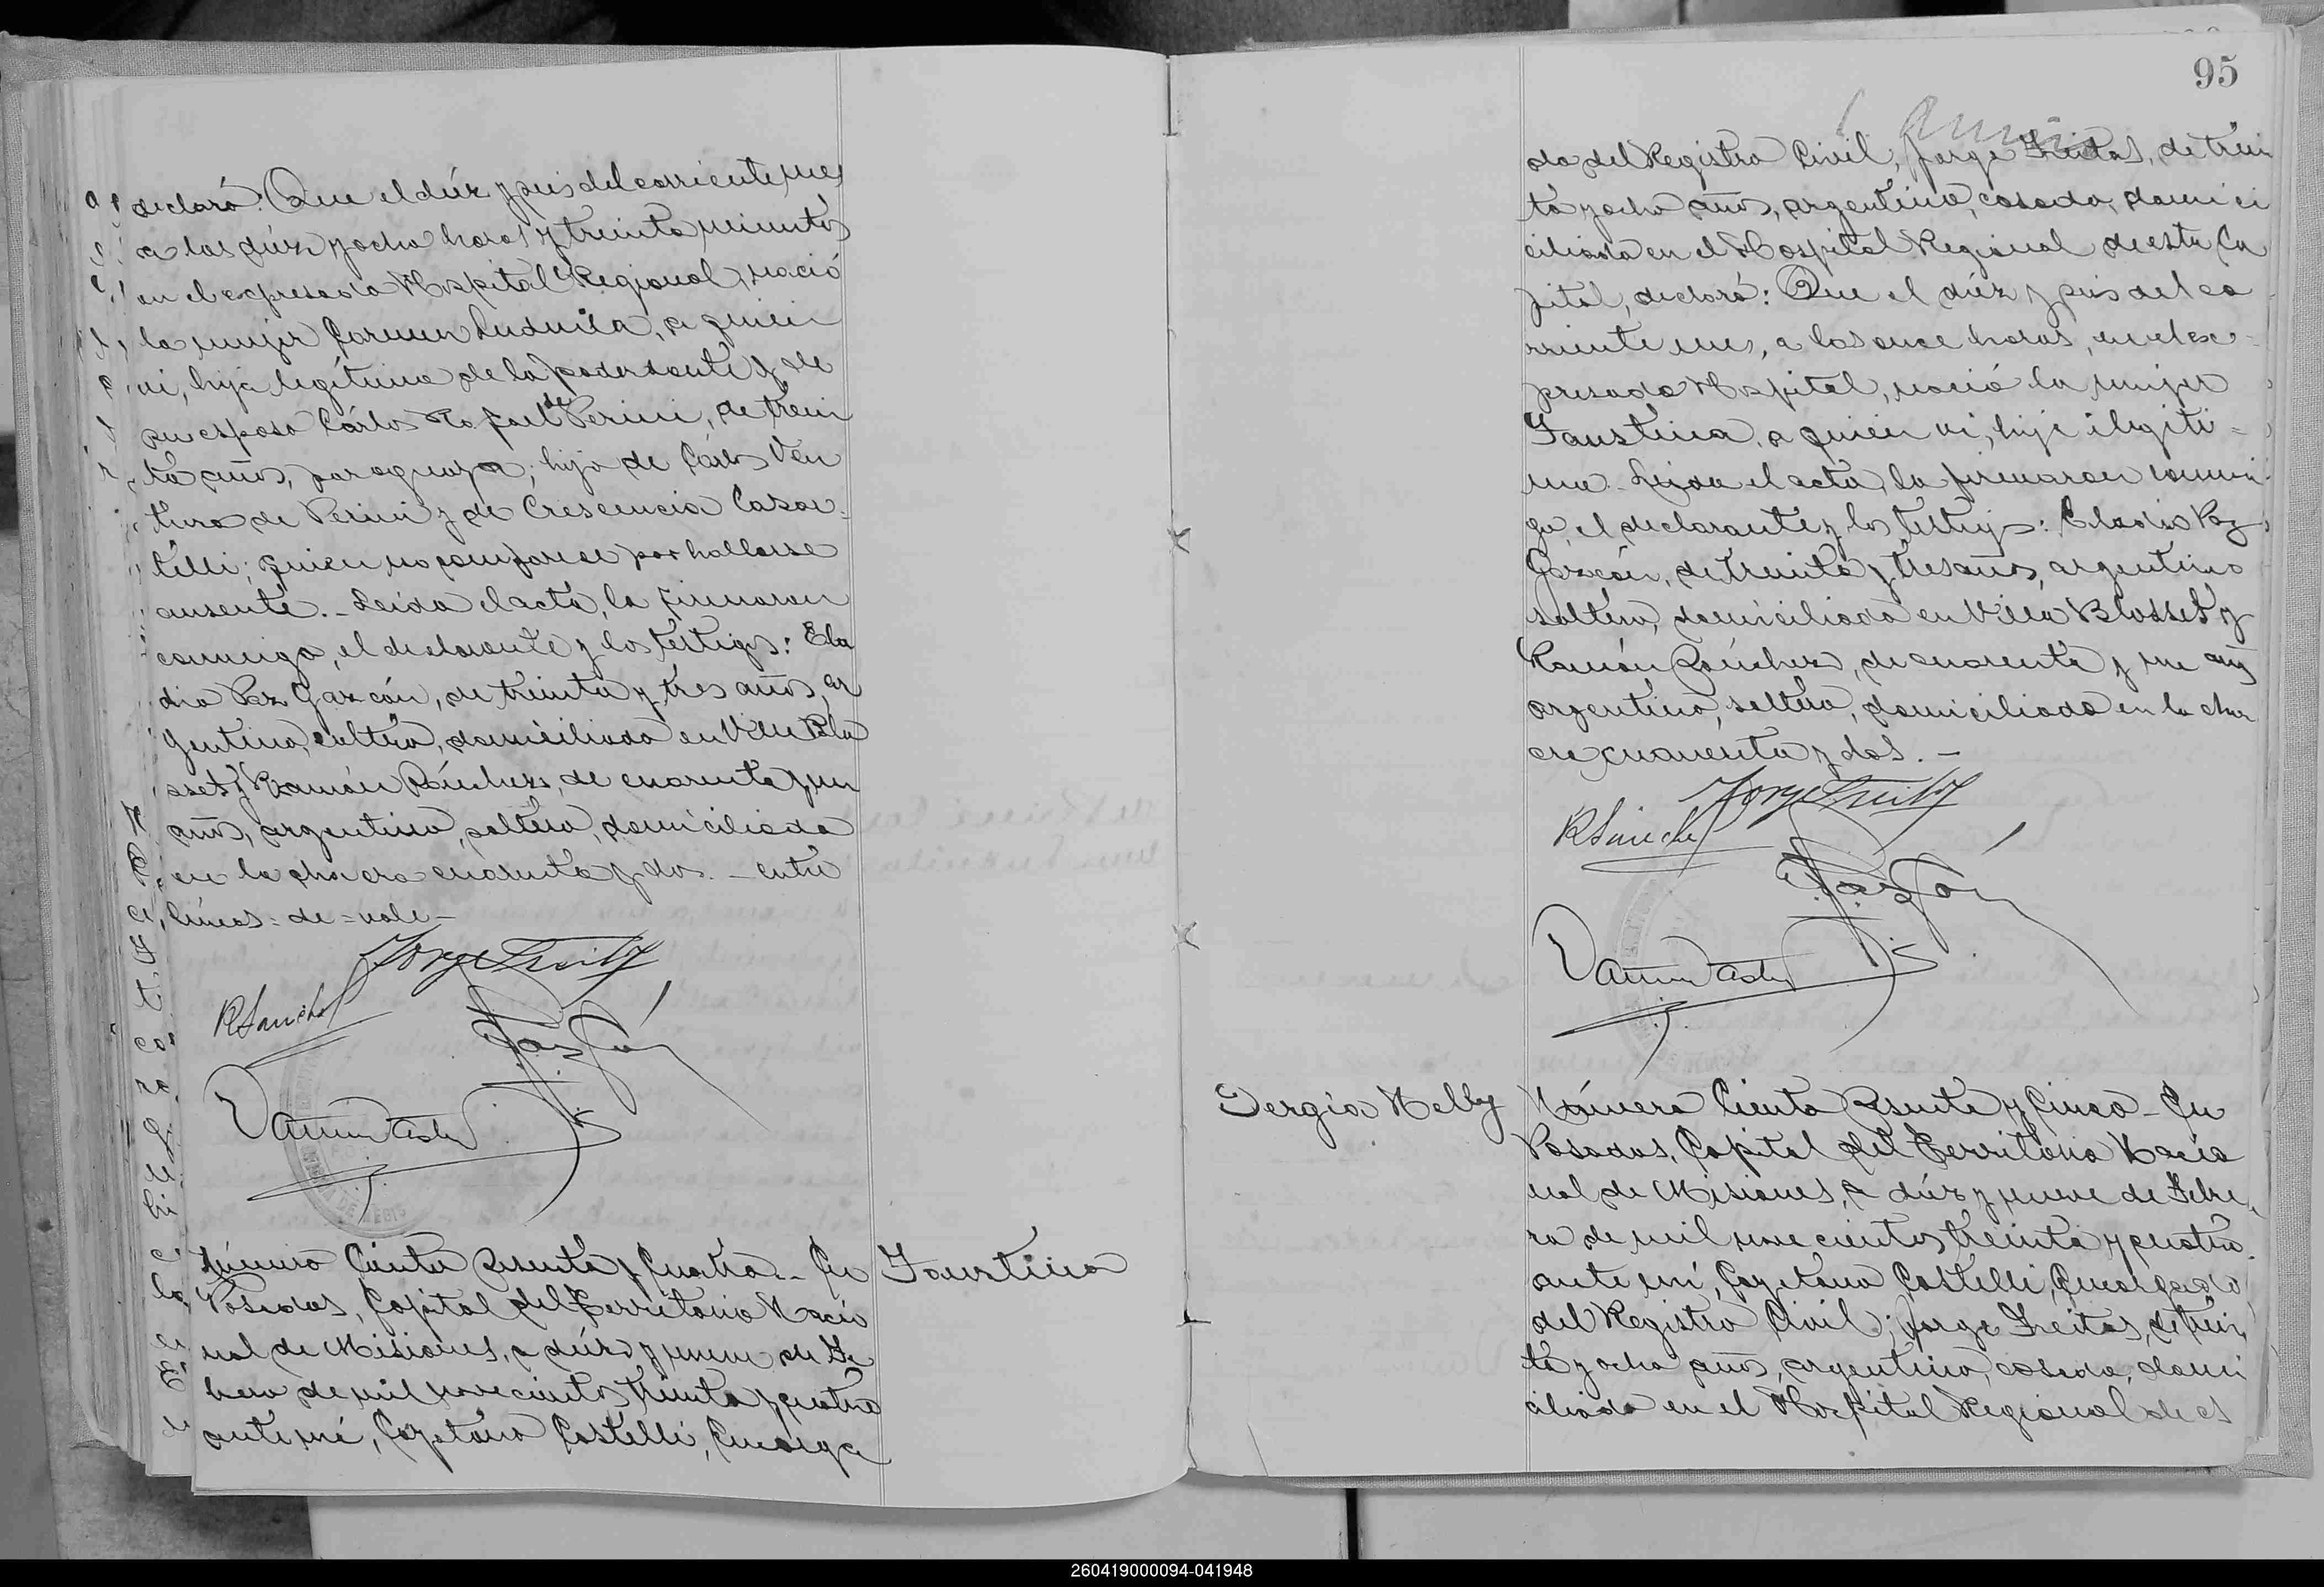 declaró: Que el diéz y seis del corriente mes
a las diéz y ocho horas y treinta minutos
en el expresado Hospital Regional, nació
la mujer Carmen Ludmila, a quien
ví, hija legítima de la poderdante y de
su esposo Cárlos Rafael de Perini, de trein
ta años, paraguayo; hijo de Cárlos Ven
tura de Perini y de Crescencia Casar-
telli; quien no comparece por hallarse
ausente.- Leida el acta, la firmaron
conmigo, el declarante y los testigos: Ela
dio Paz Garzón, de treinta y tres años, ar
gentino, soltero, domiciliado en Villa Blo
sset y Ramón Sánchez, de cuarenta y un
años, argentino, soltero, domiciliado
en la chacra cuarenta y dos.- entre
líneas=de=vale-
Jorge Freitas
R Sanchez
Número Ciento Sesenta y Cuatro.- En
Posadas, Capital del Territorio Nacio
nal de Misiones, a diéz y nueve de Fe
brero de mil novecientos treinta y cuatro
ante mí, Cayetano Castelli, Encarga
Faustina
95
do del Registro Civil, Jorge Freitas, de trein
ta y ocho años, argentino, casado, domi ci
ciliado en el Hospital Regional de esta Ca
pital, declaró: Que el diéz y seis del co
rriente mes, a las once horas, en el ex-
presado Hospital, nació la mujer
Faustina, a quien ví, hija ilegíti-
ma.- Leida el acta, la firmaron conmi
go, el declarante y los testigos: Eladio Paz
Garzón, de treinta y tres años, argentino
soltero, domiciliado en Villa Blosset y
Ramón Sánchez, de cuarenta y un años
argentino, soltero, domiciliado en la cha
cra cuarenta y dos.-
Jorge Freitas
R Sanchez
Sergia Nelly
Número Ciento Sesenta y Cinco.- En
Posadas, Capital del Territorio Nacio
nal de Misiones, a diéz y nueve de Febre
ro de mil novecientos treinta y cuatro.
ante mí, Cayetano Castelli, Encargado
del Registro Civil; Jorge Freitas, de trein
ta y ocho años, argentino, casado, domi
ciliado en el Hospital Regional de es
260419000094-041948